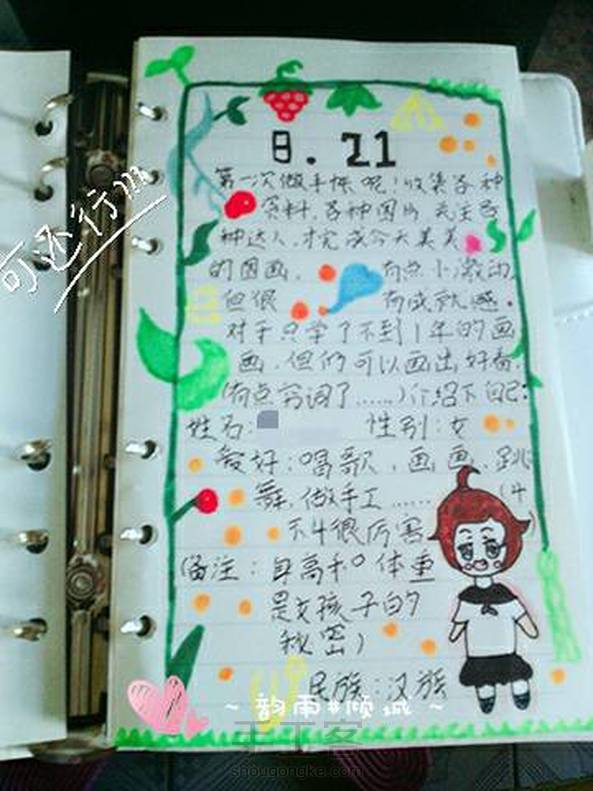 8.21
第一次做手帐呢！收集各种
资料、各种图片 关注各
种达人，才完成今天美美
的图画。 有点小激动，
但很 有成就感。
对于只学了不到1年的画
画，但们可以画出好看。
(有点穷词了……)介绍下自己:
姓名: 性别:女
爱好:唱歌、画画、跳
舞、做手工……
不4很厉害
(备注:身高和 体重
是女孩子的
秘密)
民族:汉族
~韵雨#倾城~
手工客
shougongke.com